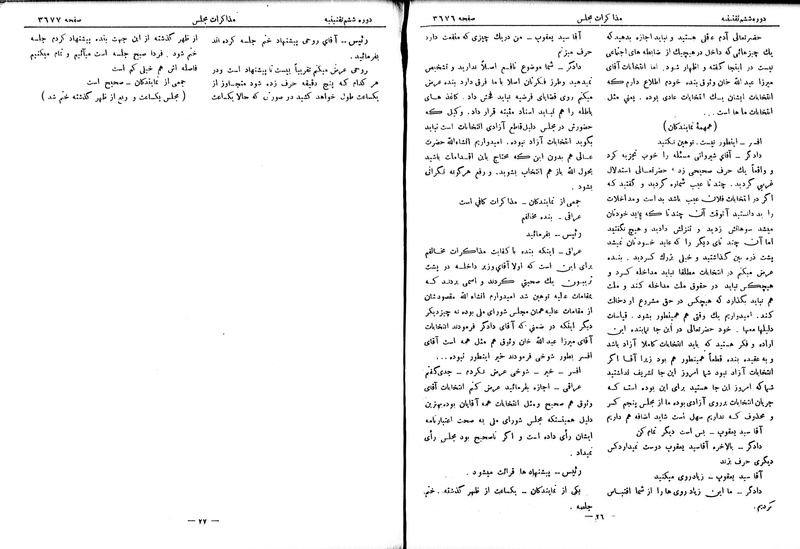 دوره ششم تقنینیه
مذاکرات مجلس
صفحه ۳۶۷۶
حضرتعالی آدم عاقلی هستید و نباید اجازه بدهید که
یك چیزهائی که داخل در هیچیك از ضابطه های اجتماعی
نیست در اینجا گفته و اظهار شود. اما انتخابات آقای
میرزا عبد الله خان وثوق بنده خودم اطلاع دارم که
انتخابات ایشان یك انتخابات عادی بوده. یعنی مثل
انتخابات ما ها است...
(همهمهٔ نمایندگان)
افسر ـ اینطور نیست. توهین نکنید
دادگر ـ آقای شیروانی مسئله را خوب تجزیه کرد
و واقعاً یك حرف صحیحی زد. حضرتعالی استدلال
غریبی کردید. چند تا عیب شماره کردید و گفتید که
اگر در انتخابات فلان عیب باشد بد است و مداخلات
را بد دانستید آنوقت آن چند تا که پای خودتان
میشد سوهانش زدید و تنزلش دادید و هیچ نگفتید
اما آن چند تای دیگر را که عاید خودتان نمیشد
پشت ذره بین گذاشتید و خیلی بزرگ کردید. بنده
عرض میکنم در انتخابات مطلقا نباید مداخله کرد و
هیچکس نباید در حقوق ملت مداخله کند و ملت
هم نباید بگذارد که هیچکس در حق مشروع او دخالت
کند. امیدواریم یك وقتی هم همینطور بشود. قیاسات
دلیلها معها. خود حضرتعالی در این جا نماینده این
اراده و فکر هستید که باید انتخابات کاملا آزاد باشد
و به عقیده بنده قطعاً همینطور هم بود زیرا آقا اگر
انتخابات آزاد نبود شما امروز این جا تشریف نداشتید
شما که امروز این جا هستید برای این بوده است که
جریان انتخابات بروی آزادی بوده ما از مجلس پنجم کسر
و محذوف که نداریم سهل است شاید اضافه هم داریم
آقا سید یعقوب ـ بس است دیگر تمام کن
دادگر ـ بالاخره آقا سید یعقوب دوست نمیدارد کس
دیگری حرف بزند
آقا سید یعقوب ـ زیاد روی میکنید
دادگر ـ ما این زیاد روی ها را از شما اقتباس
کردیم.
ـ ۲۶ ـ
آقا سید یعقوب ـ من در یك چیزی که منفعت دارد
حرف میزنم
دادگر ـ شما موضوع نافع اصلا ندارید و تشخیص
نمیدهید و طرز فکرتان اصلا با ما فرق دارد بنده عرض
میکنم روی قضایای فرضیه نباید فحش داد. کاغذ های
باطله را هم نباید اسناد مثبته قرار داد. وکیل که
حضورش در مجلس دلیل قاطع آزادی انتخابات است نباید
بگوید انتخابات آزاد نبوده. امیدواریم انشاءالله حضرت
عالی هم بدون این که محتاج باین اقدامات باشید
بحول الله باز هم انتخاب بشوید. و رفع هرگونه نگرانی
بشود.
جمعی از نمایندگان ـ مذاکرات کافی است
عراقی ـ بنده مخالفم
رئیس ـ بفرمائید
عراقی ـ اینکه بنده با کفایت مذاکرات مخالفم
برای این است که اولا آقای وزیر داخله در پشت
تریبون یك صحبتی کردند و اسمی بردند که
بمقامات عالیه توهین شد امیدوارم انشاءالله مقصودشان
از مقامات عالیه همان مجلس شورای ملی بوده نه چیز دیگر
دیگر اینکه در ضمنی که آقای دادگر فرمودند انتخابات
آقای میرزا عبد الله خان وثوق هم مثل همه است آقای
افسر بطور شوخی فرمودند خیر اینطور نبوده...
افسر ـ خیر ـ شوخی عرض نکردم ـ جدی گفتم
عراقی ـ اجازه بفرمائید عرض کنم انتخابات آقای
وثوق هم صحیح و مثل انتخابات همه آقایان بوده بهترین
دلیل همینستکه مجلس شورای ملی به صحت اعتبارنامه
ایشان رأی داده است و اگر ناصحیح بود مجلس رأی
نمیداد.
رئیس ـ پیشنهاد ها قرائت میشود.
یکی از نمایندگان ـ یکساعت از ظهر گذشته. ختم
جلسه.
دوره ششم تقنینیه
مذاکرات مجلس
صفحه ۳۶۷۷
رئیس ـ آقای روحی پیشنهاد ختم جلسه کرده اند
بفرمائید.
روحی عرض میکنم تقریباً بیست تا پیشنهاد است و در
هر کدام که پنج دقیقه حرف زده شود متجاوز از
یکساعت طول خواهد کشید در صورتی که حالا یکساعت
از ظهر گذشته از این جهت بنده پیشنهاد کردم جلسه
ختم شود. فردا صبح جلسه است میآئیم و تمام میکنیم
فاصله اش هم خیلی کم است
جمعی از نمایندگان ـ صحیح است
(مجلس یکساعت و ربع از ظهر گذشته ختم شد)
ـ ۲۷ ـ